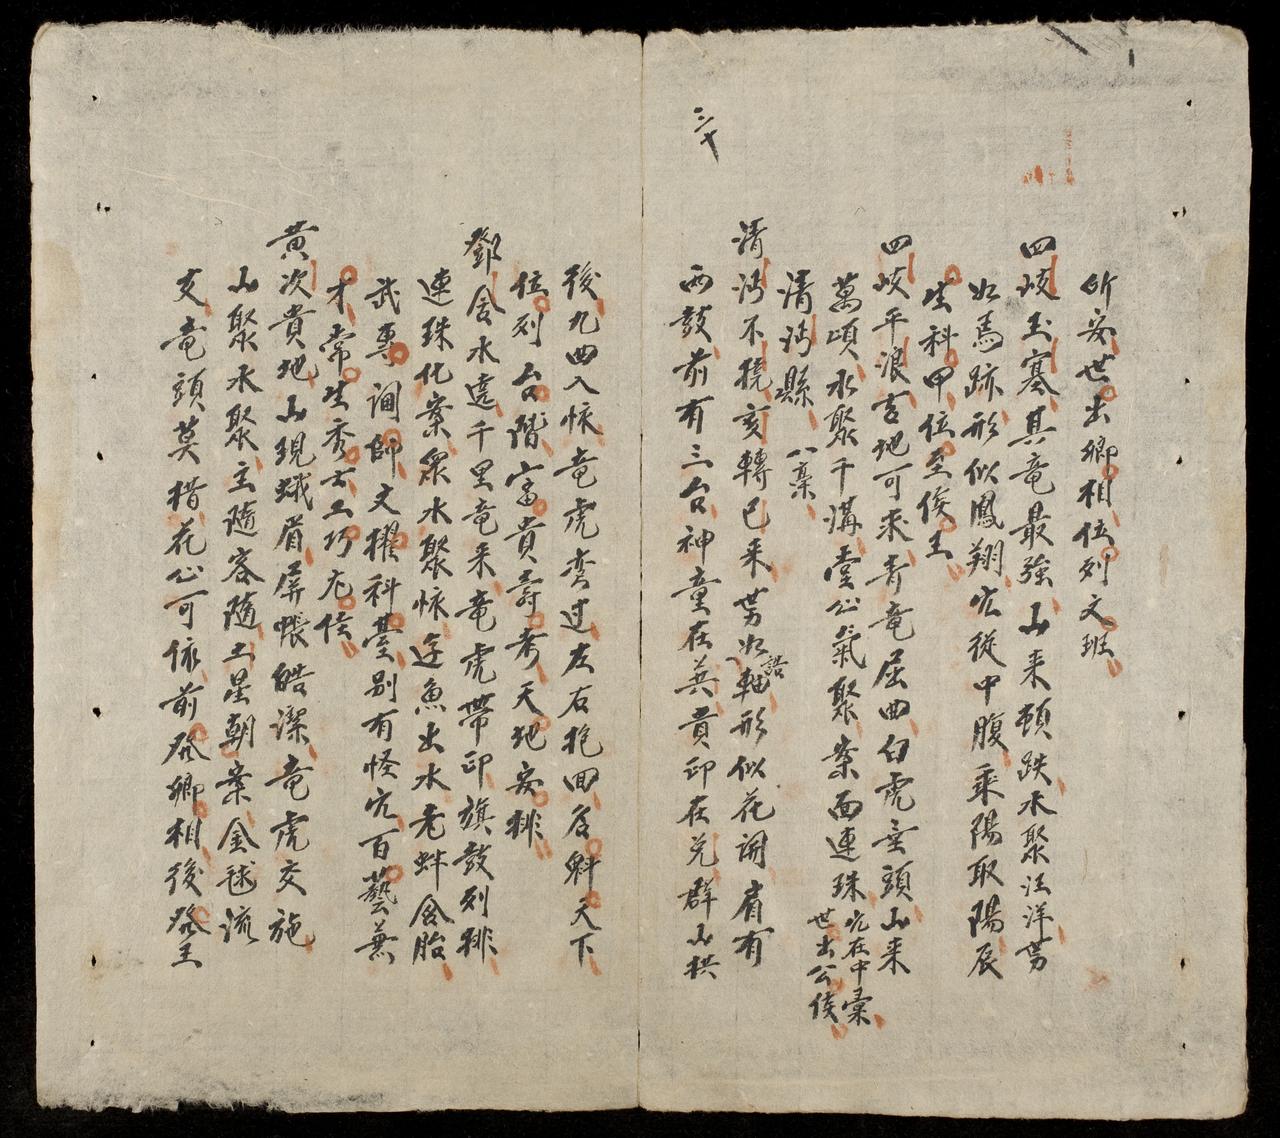 所安世出卿相位列文班
四岐玉寨其竜最強山来頓跌水聚汪洋势
如馬跡形似鳳翔穴從中腹乘陽取陽辰
生科甲位至侯王
四岐平浪吉地可求青竜屈曲白虎垂頭山来
萬頃水聚千溝堂心氣聚案面連珠穴在中藁
世出公侯
清沔縣 八藁
清沔不撓亥轉巳来势如軸誥形似花開肩有
两鼓前有三台神童在巽貴印在兌群山拱
三十
後九曲入怀竜虎弯过左右抱回名魁天下
位列台階富貴壽考天地安排
鄧舍水遶千里竜来竜虎帶印旗鼓列排
連珠化案眾水聚怀逆魚出水老蚌含胎
武專閫師文擢科臺别有怪穴百藝兼
才常生秀士工巧尤佳
黄次貴地山現蛾眉屏帳皓潔竜虎交施
山聚水聚主隨客隨土星朝案金毬流
支竜頭莫措花心可依前發卿相後發王